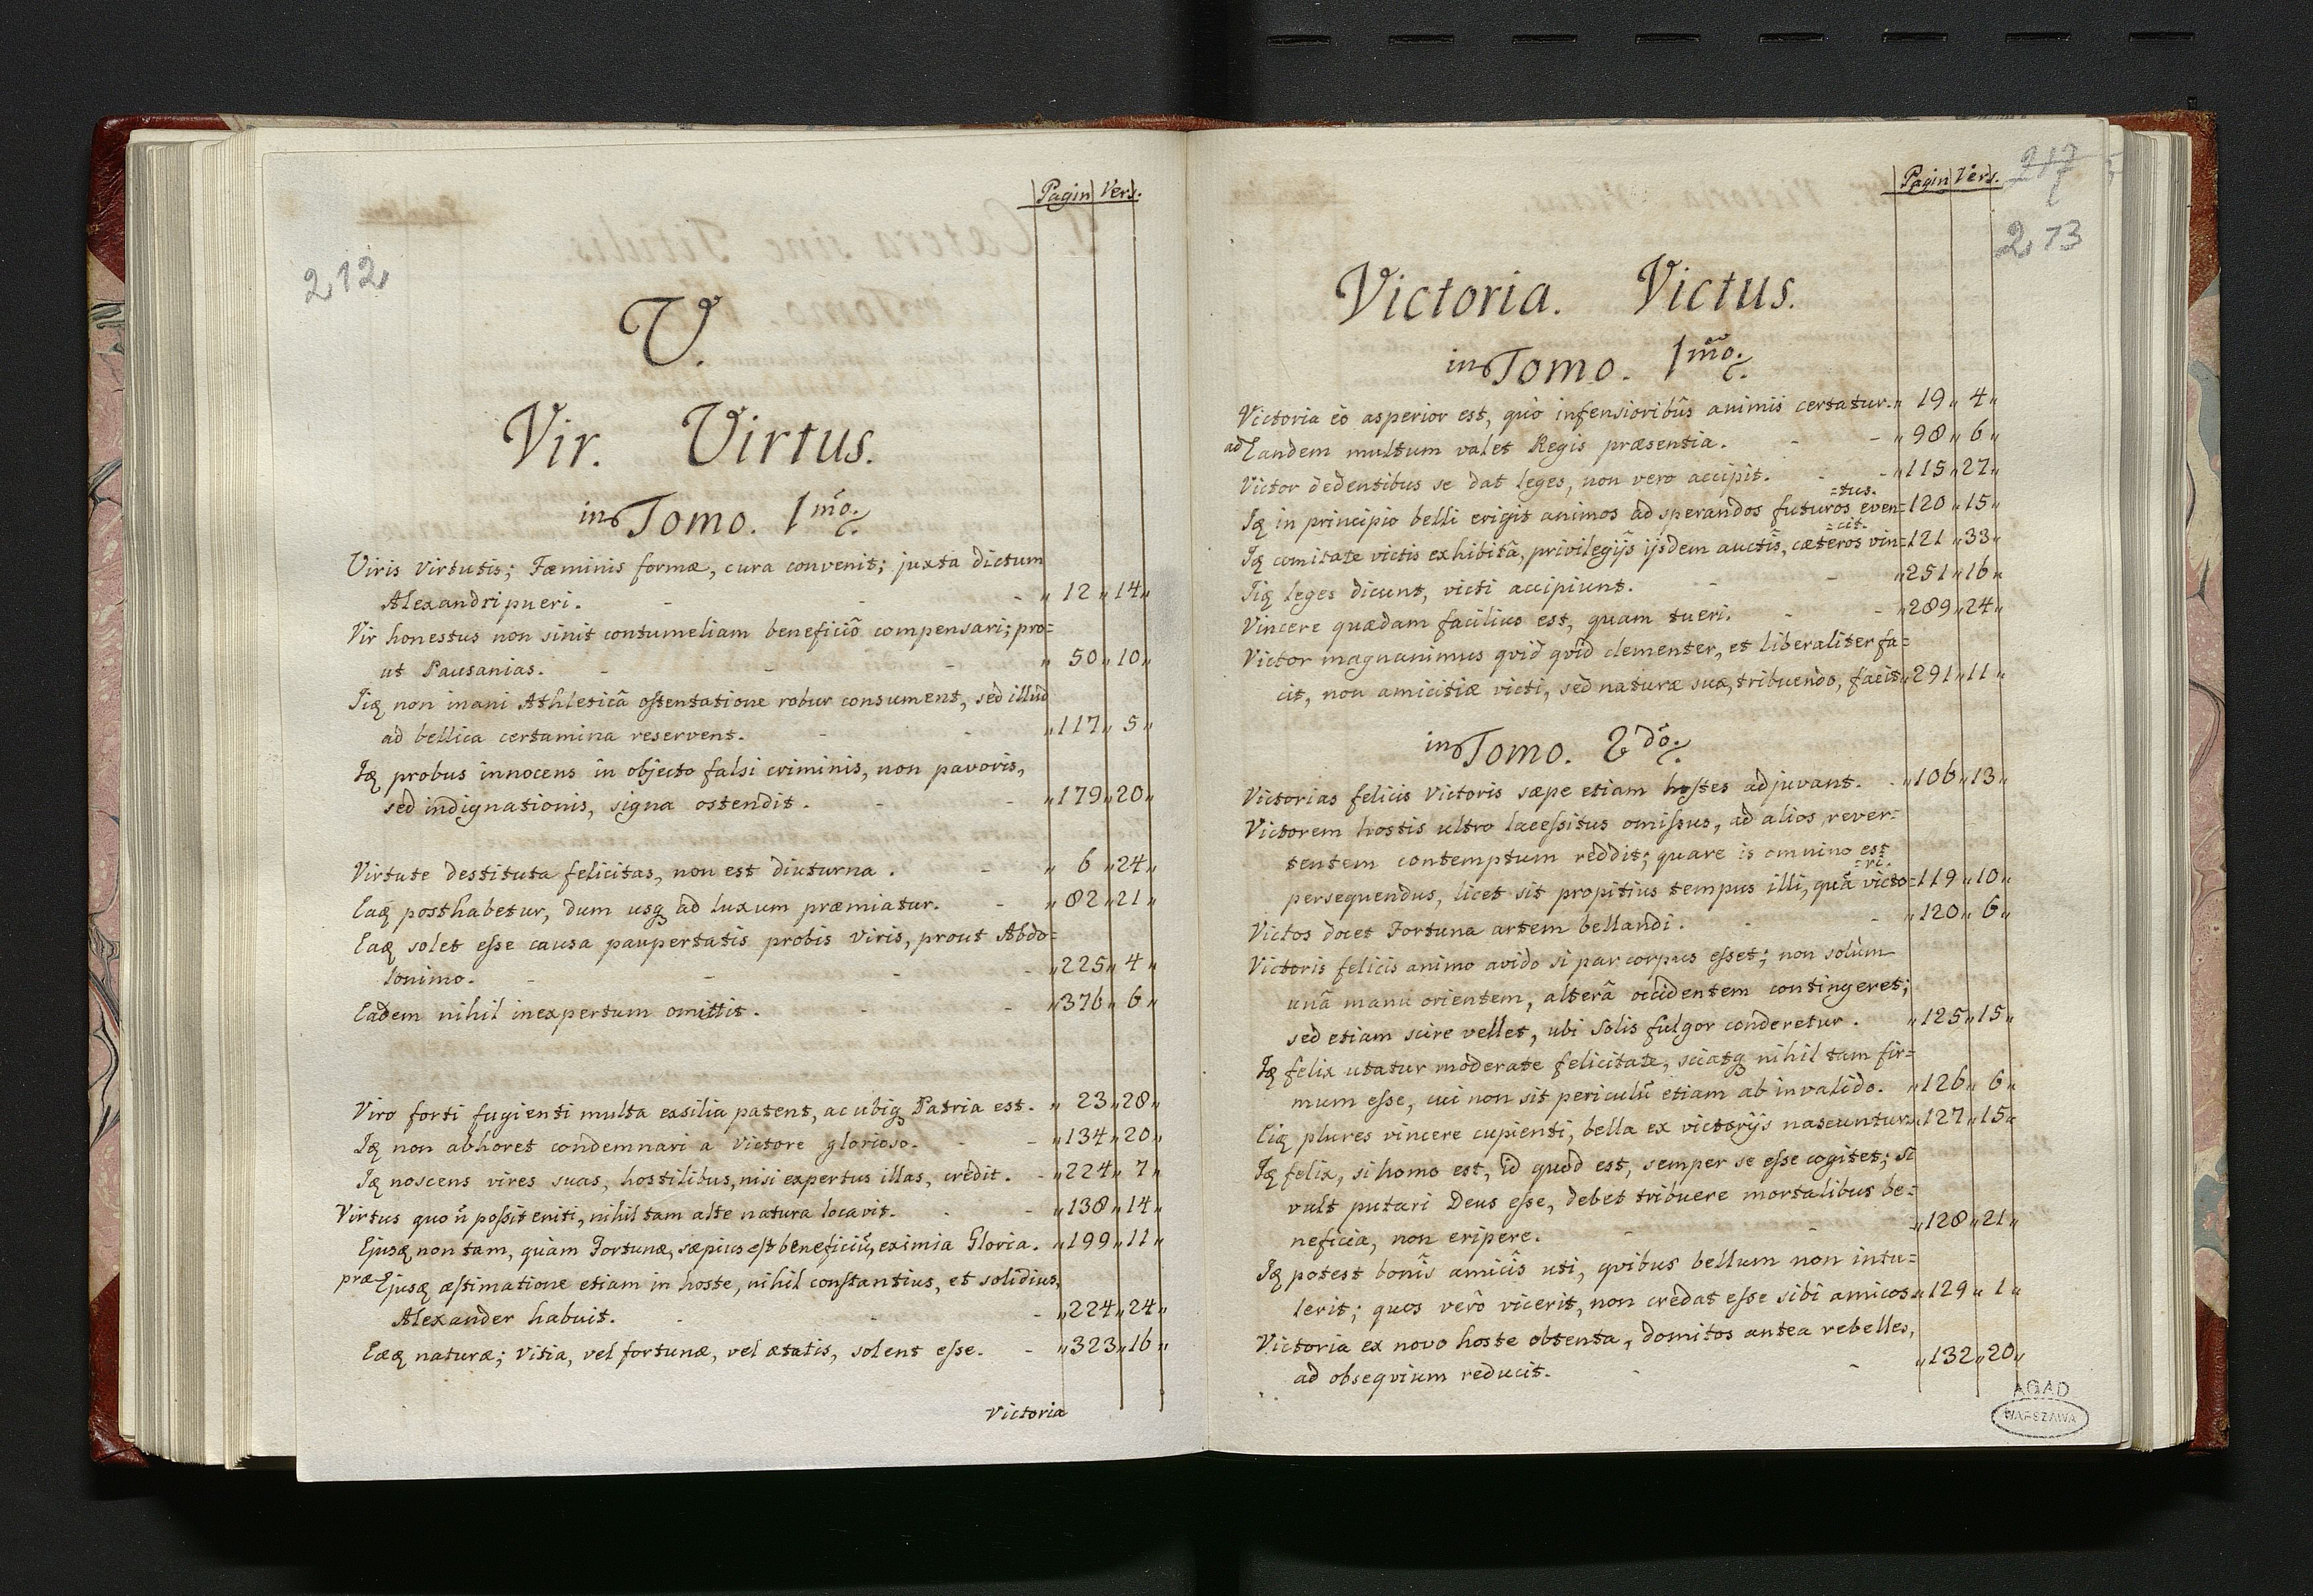 Pagin Vers.
212
V.
Vir. Virtus.
in Tomo. 1mo.
Viris Virtutis; Fæminis formæ, cura convenit; juxta dictum
Alexandri pueri. - - - „ 12 „ 14 „
Vir honestus non sinit contumeliam beneficiô compensari; pro=
ut Pausanias. - - - „ 50 „ 10 „
Iiq non inani Athleticâ ostentatione robur consument, sed illud
ad bellica certamina reservent. - - „ 117 „ 5 „
Iq probus innocens in objecto falsi criminis, non pavoris,
sed indignationis, signa ostendit. - - „ 179 „ 20 „
Virtute destituta felicitas, non est diuturna. - „ 6 „ 24 „
Eaq posthabetur, dum usq ad luxum præmiatur. - „ 82 „ 21 „
Eaq solet esse causa paupertatis probis viris, prout Abdo=
lonimo. - - - - „ 225 „ 4 „
Eadem nihil inexpertum omittit. - - „ 376 „ 6 „
Viro forti fugienti multa exsilia patent, ac ubiq Patria est. „ 23 „ 28 „
Iq non abhoret condemnari a Victore glorioso. - - „ 134 „ 20 „
Iq noscens vires suas, hostilibus, nisi expertus illas, credit. - „ 224 „ 7 „
Virtus quo ñ possit eniti, nihil tam alte natura locavit. - - „ 138 „ 14 „
Ejusq non tam, quàm Fortunæ, sæpius est beneficiũ, eximia Gloria. „ 199 „ 11 „
præ Ejusq æstimatione etiam in hoste, nihil constantius, et solidius,
Alexander habuit. - - - „ 224 „ 24 „
Eæq naturæ; Vitia, vel fortunæ, vel ætatis, solent esse. - „ 323 „ 16 „
Victoria
Pagin Vers.
217
213
Victoria. Victus.
in Tomo. 1mo.
Victoria eò asperior est, quò infensioribûs animis certatur. „ 19 „ 4 „
ad Eandem multum valet Regis præsentia. - - „ 98 „ 6 „
Victor dedentibus se dat leges, non vero accipit. - - „ 115 „ 27 „
=tus.
Iq in principio belli erigit animos ad sperandos futuros even= 120 „ 15 „
=cit.
Iq comitate victis exhibitâ, privilegijs ijsdem auctis, cæteros vin= 121 „ 33 „
Iiq leges dicunt, victi accipiunt. - - „ 251 „ 16 „
Vincere quædam facilius est, quam tueri. - - „ 289 „ 24 „
Victor magnanimus qvid qvid clementer, et liberaliter fa=
cit, non amicitiæ victi, sed naturæ suæ, tribuendo, facit „ 291 „ 11 „
in Tomo. 2do.
Victorias felicis Victoris sæpe etiam hostes adjuvant. - „ 106 „ 13 „
Victorem hostis ultro lacessitus omissus, ad alios rever=
tentem contemptum reddit; quare is omnino est
=ri.
persequendus, licet sit propitius tempus illi, quã victo= 119 „ 10 „
Victos docet Fortuna artem bellandi. - - „ 120 „ 6 „
Victoris felicis animo avido si par corpus esset; non solùm
unâ manu orientem, alterâ occidentem contingeret;
sed etiam scire vellet, ubi Solis fulgor conderetur. „ 125 „ 15 „
Iq felix utatur moderate felicitate, sciatq nihil tam fir=
mum esse, cui non sit periculũ etiam ab invalido. „ 126 „ 6 „
Eiq plures vincere cupienti, bella ex victorijs nascuntur. „ 127 „ 15 „
Iq felix, si homo est, id quod est, semper se esse cogitet; si
vult putari Deus esse, debet tribuere mortalibus be=
neficia, non eripere. - - „ 128 „ 21 „
Iq potest bonîs amicîs uti, qvibus bellum non intu=
lerit; quos verò vicerit, non credat esse sibi amicos „ 129 „ 1 „
Victoria ex novo hoste obtenta, domitos antea rebelles,
ad obseqvium reducit. - - „ 132 „ 20 „
AGAD
WARSZAWA